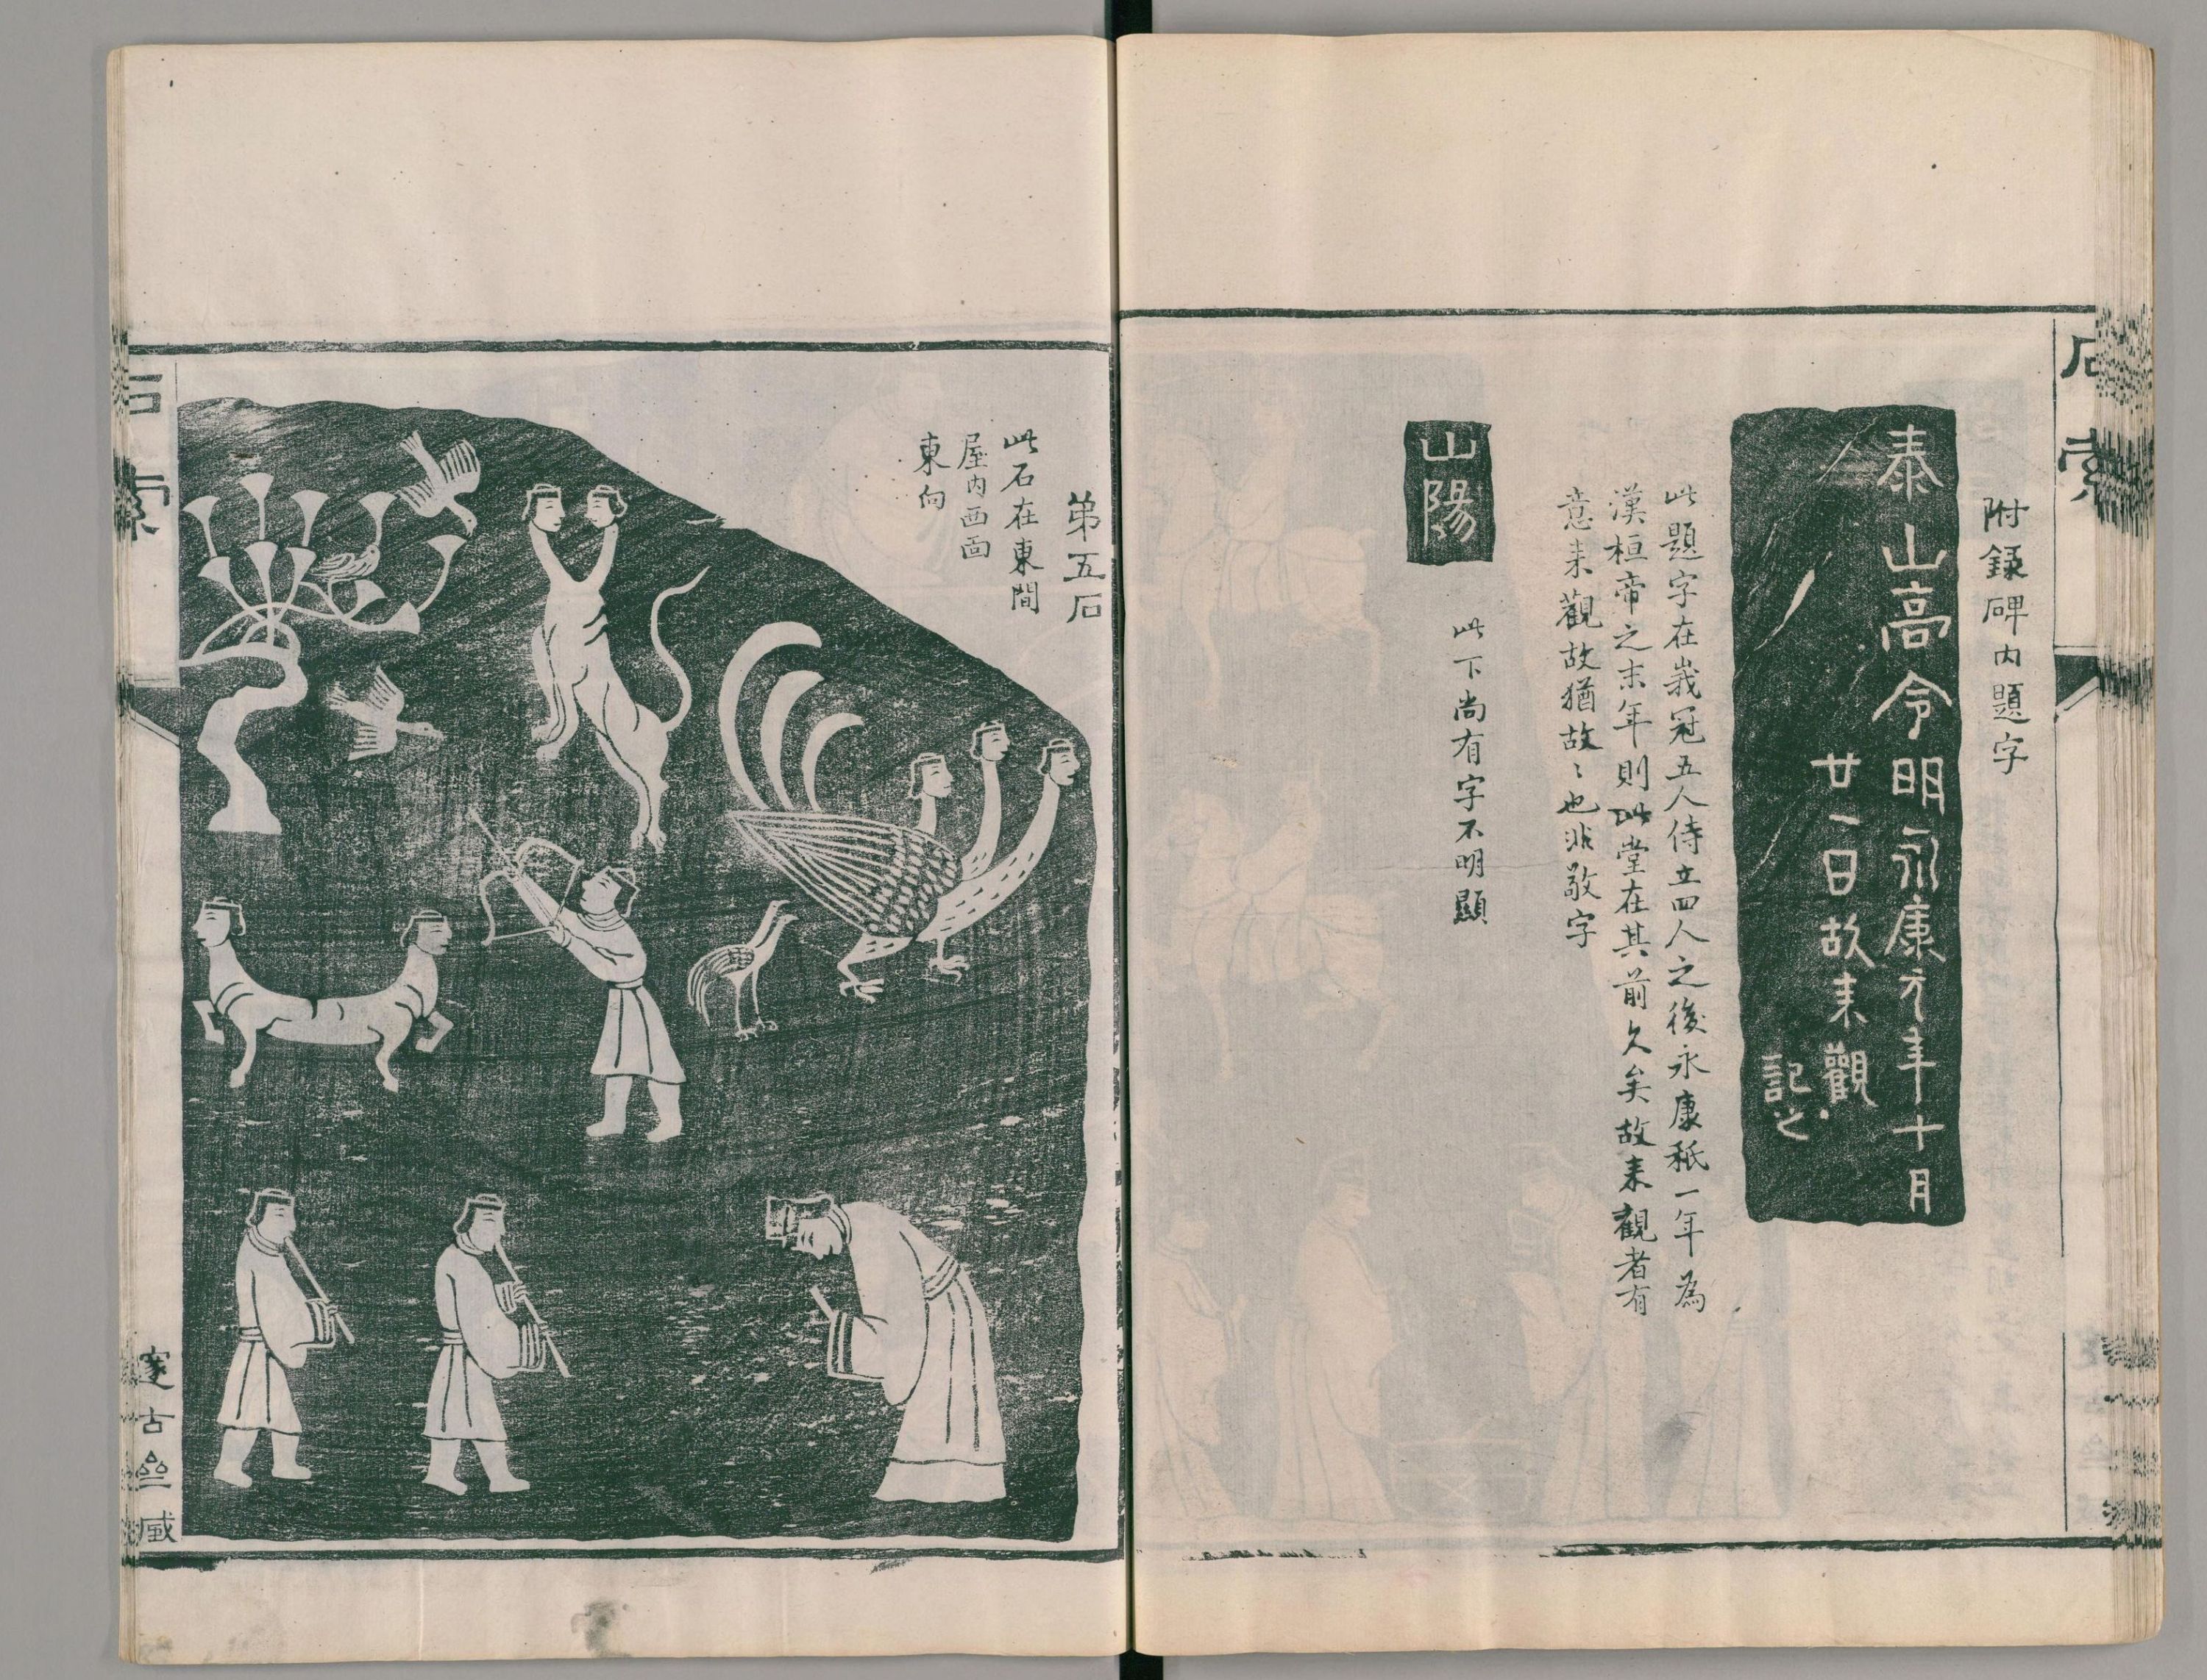 石索
附錄碑内題字
泰山高令明永康元年十月
廿一日故来觀
記之
此題字在峩冠五人侍立四人之後永康秖一年為
漢桓帝之末年則此堂在其前久矣故来觀者有
意来觀故猶故〻也非敬字
山陽
此下尚有字不明顯
第五石
此石在東間
屋内西面
東向
石索
邃古齋藏